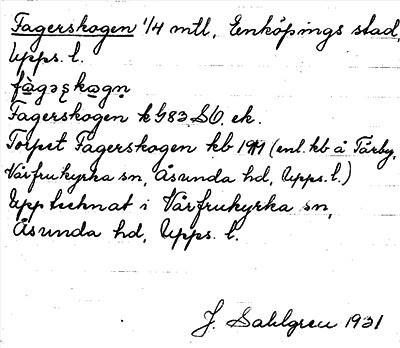 Fagerskogen 1/4 mtl, Eenköpings stad,
Upps. l.
fàgəʂkogn̥
Fagerskogen k 583 SO. ek.
Torpet Fagerskogen kb 1911 (enl. kb å Tärby,
Vårfrukyrka sn, Åsunda hd, Upps. l.)
Upptecknat i Vårfrukyrka sn,
Åsunda hd, Upps. l.
J. Sahlgren 1931